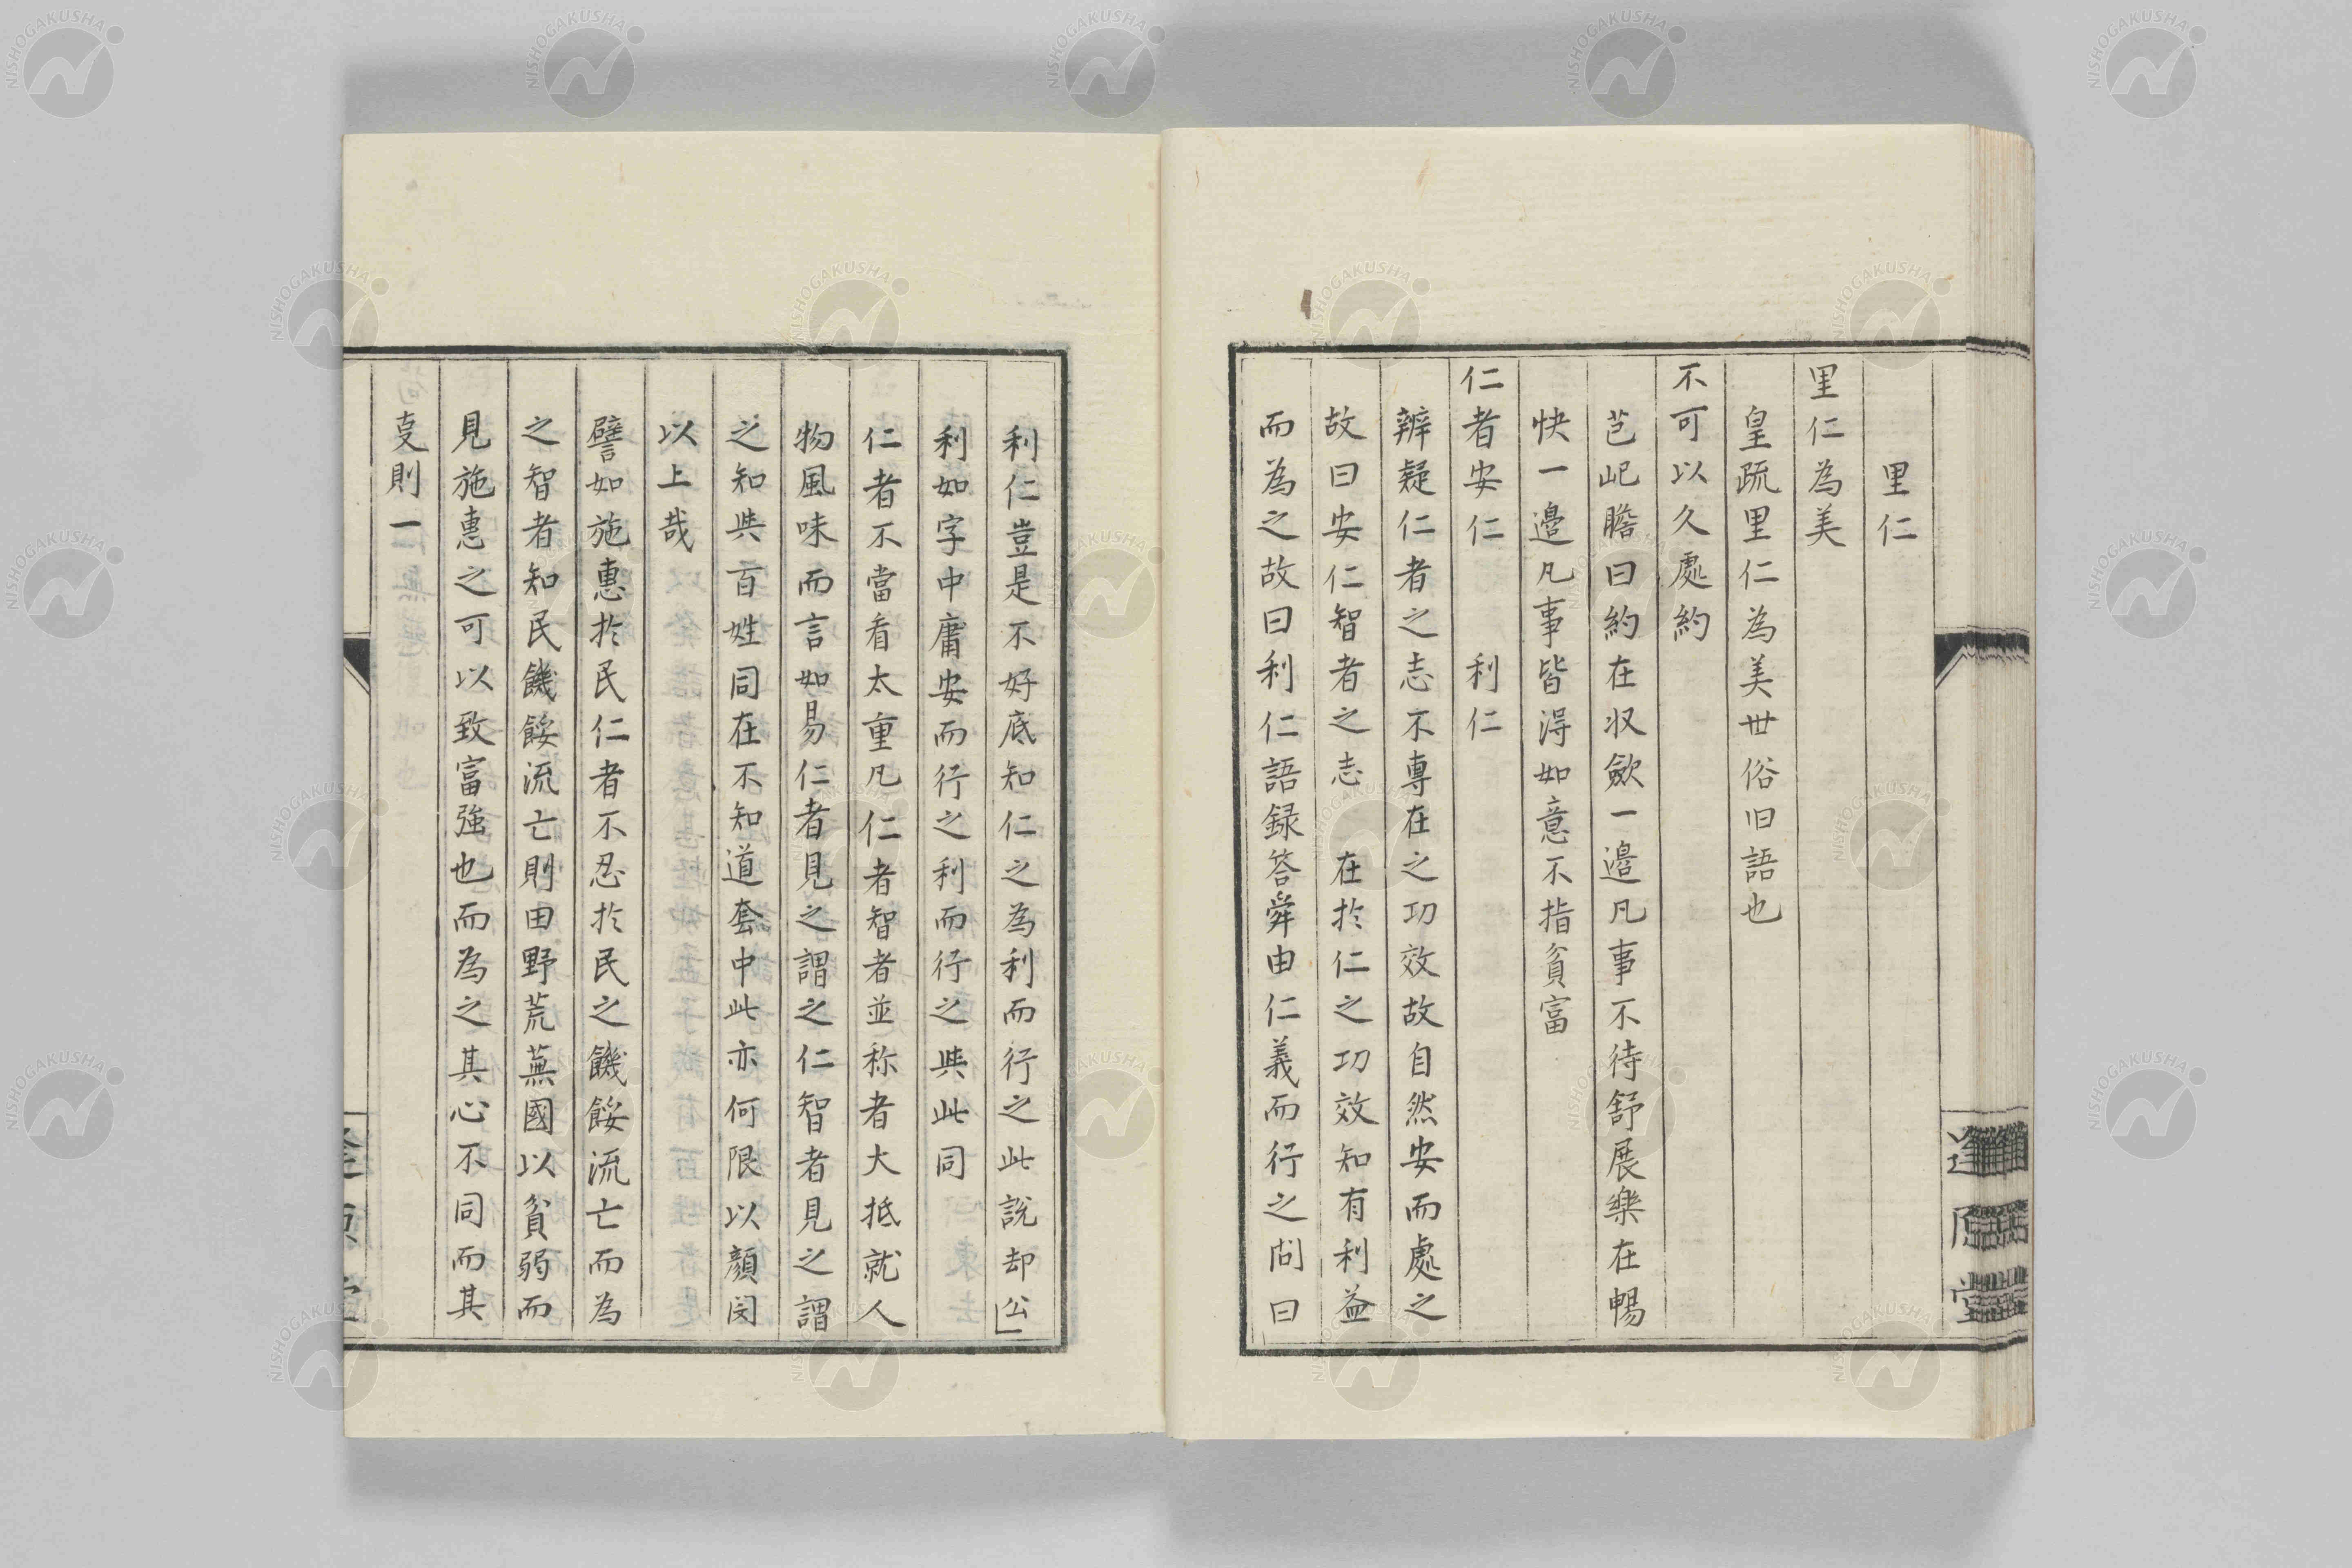 里仁
里仁為美
皇疏里仁為美世俗旧語也
不可以久處約
芑屺瞻曰約在収歛一邉凡事不待舒展樂在暢
快一邉凡事皆淂如意不指貧富
仁者安仁　利仁
辨疑仁者之志不專在之功效故自然安而處之
故曰安仁智者之志　在扵仁之功效知有利益
而為之故曰利仁語録答舜由仁義而行之问曰
利仁豈是不好底知仁之為利而行之此説却公」
利如字中庸安而行之利而行之與此同
仁者不當看太重凡仁者智者並称者大抵就人
物風味而言如易仁者見之謂之仁智者見之謂
之知與百姓同在不知道套中此亦何限以顔闵
以上哉
譬如施惠扵民仁者不忍扵民之饑餒流亡而為
之智者知民饑餒流亡則田野荒蕪國以貧弱而
見施惠之可以致富強也而為之其心不同而其
㕝則一
逢原堂